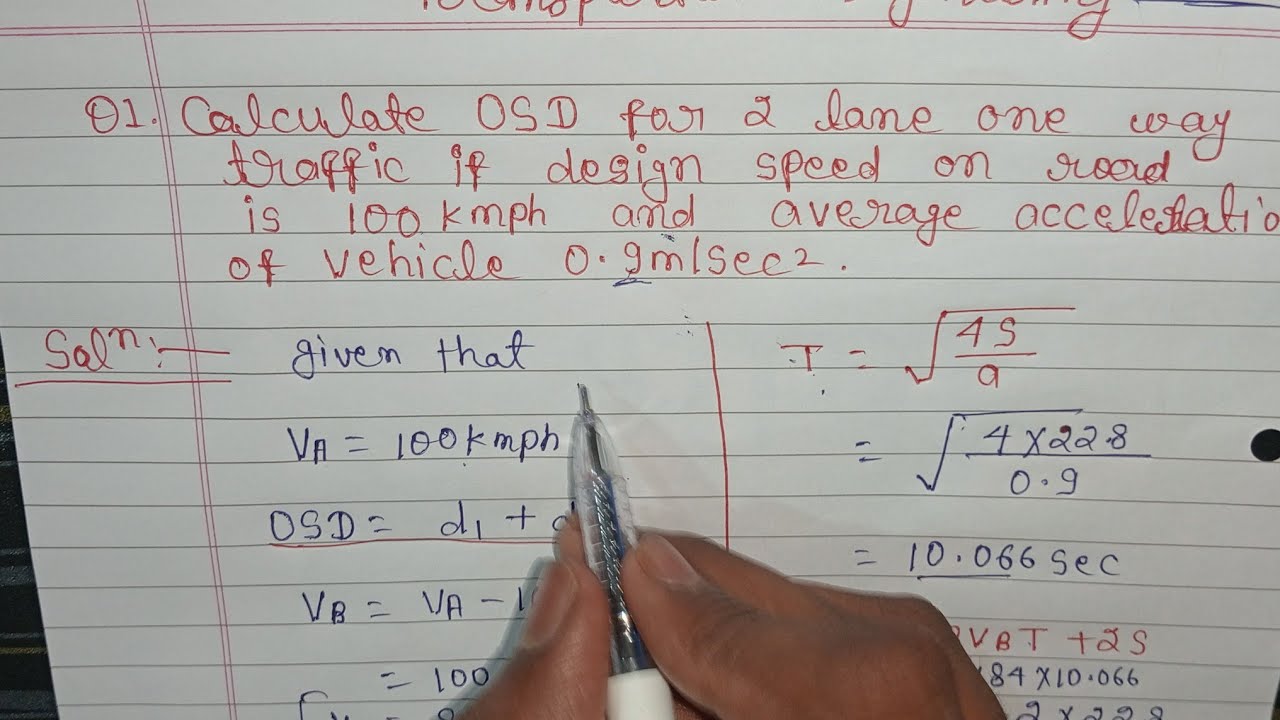 Q1. Calculate OSD for 2 lane one way
traffic if design speed on road
is 100 kmph and average acceleratio
of vehicle 0.9m/sec2.
Solⁿ:-
given that
VA = 100kmph
OSD = d1 +
VB = VA - 1
= 100
T = √4S/a
= √4×22.8/0.9
= 10.066 sec
VBT + 2S
84×10.066
2×22.8